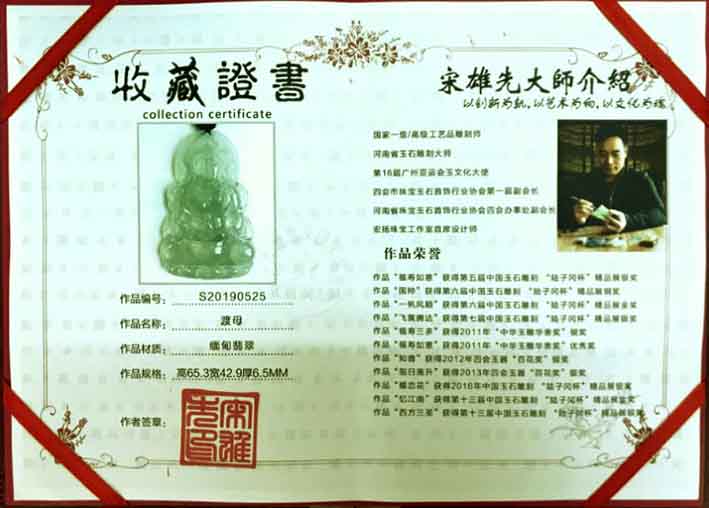 收藏證書
collection certificate
作品编号： S20190525
作品名称： 渡母
作品材质： 缅甸翡翠
作品规格： 高65.3宽42.9厚6.5MM
作者签章：
宋雄先印
宋雄先大師介紹
以创新为轨，以艺术为向，以文化为魂
国家一级/高级工艺品雕刻师
河南省玉石雕刻大师
第16届广州亚运会玉文化大使
四会市珠宝玉石首饰行业协会第一届副会长
河南省珠宝玉石首饰行业协会四会办事处副会长
宏扬珠宝工作室首席设计师
作品荣誉
作品“福寿如意”获得第五届中国玉石雕刻“陆子冈杯”精品展银奖
作品“国粹”获得第六届中国玉石雕刻“陆子冈杯”精品展铜奖
作品“一帆风顺”获得第六届中国玉石雕刻“陆子冈杯”精品展金奖
作品“飞黄腾达”获得第七届中国玉石雕刻“陆子冈杯”精品展银奖
作品“福寿三多”获得2011年“中华玉雕华表奖”银奖
作品“福寿如意”获得2011年“中华玉雕华表奖”优秀奖
作品“知音”获得2012年四会玉器“百花奖”银奖
作品“指日高升”获得2013年四会玉器“百花奖”银奖
作品“蝶恋花”获得2016年中国玉石雕刻“陆子冈杯”精品展银奖
作品“忆江南”获得第十三届中国玉石雕刻“陆子冈杯”精品展金奖
作品“西方三圣”获得第十三届中国玉石雕刻“陆子冈杯”精品展银奖